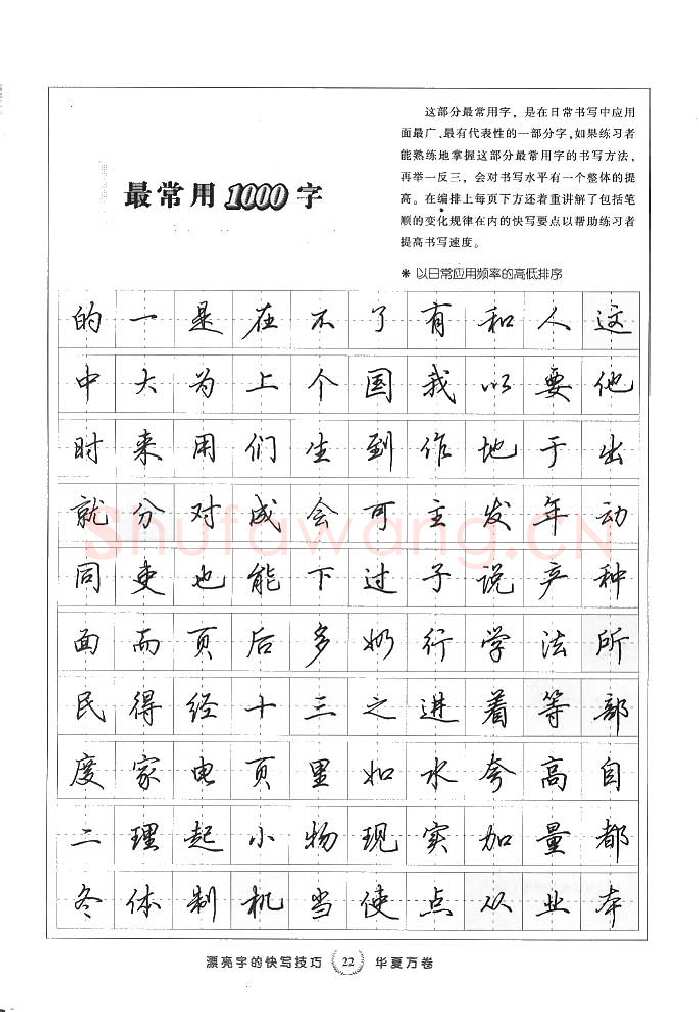 这部分最常用字，是在日常书写中应用
面最广、最有代表性的一部分字,如果练习者
能熟练地掌握这部分最常用字的书写方法，
再举一反三，会对书写水平有一个整体的提
高。在编排上每页下方还着重讲解了包括笔
顺的变化规律在内的快写要点以帮助练习者
提高书写速度。
最常用1000字
※ 以日常应用频率的高低排序
的一是在不了有和人这
中大为上个国我以要他
时来用们生到作地于出
就分对成会可主发年动
同吏也能下过子说产种
面而页后多奶行学法所
民得经十三之进着等部
度家电页里如水夸高自
二理起小物现实加量都
冬体制机当使点从业本
Shufawang.CN
漂亮字的快写技巧 22 华夏万卷